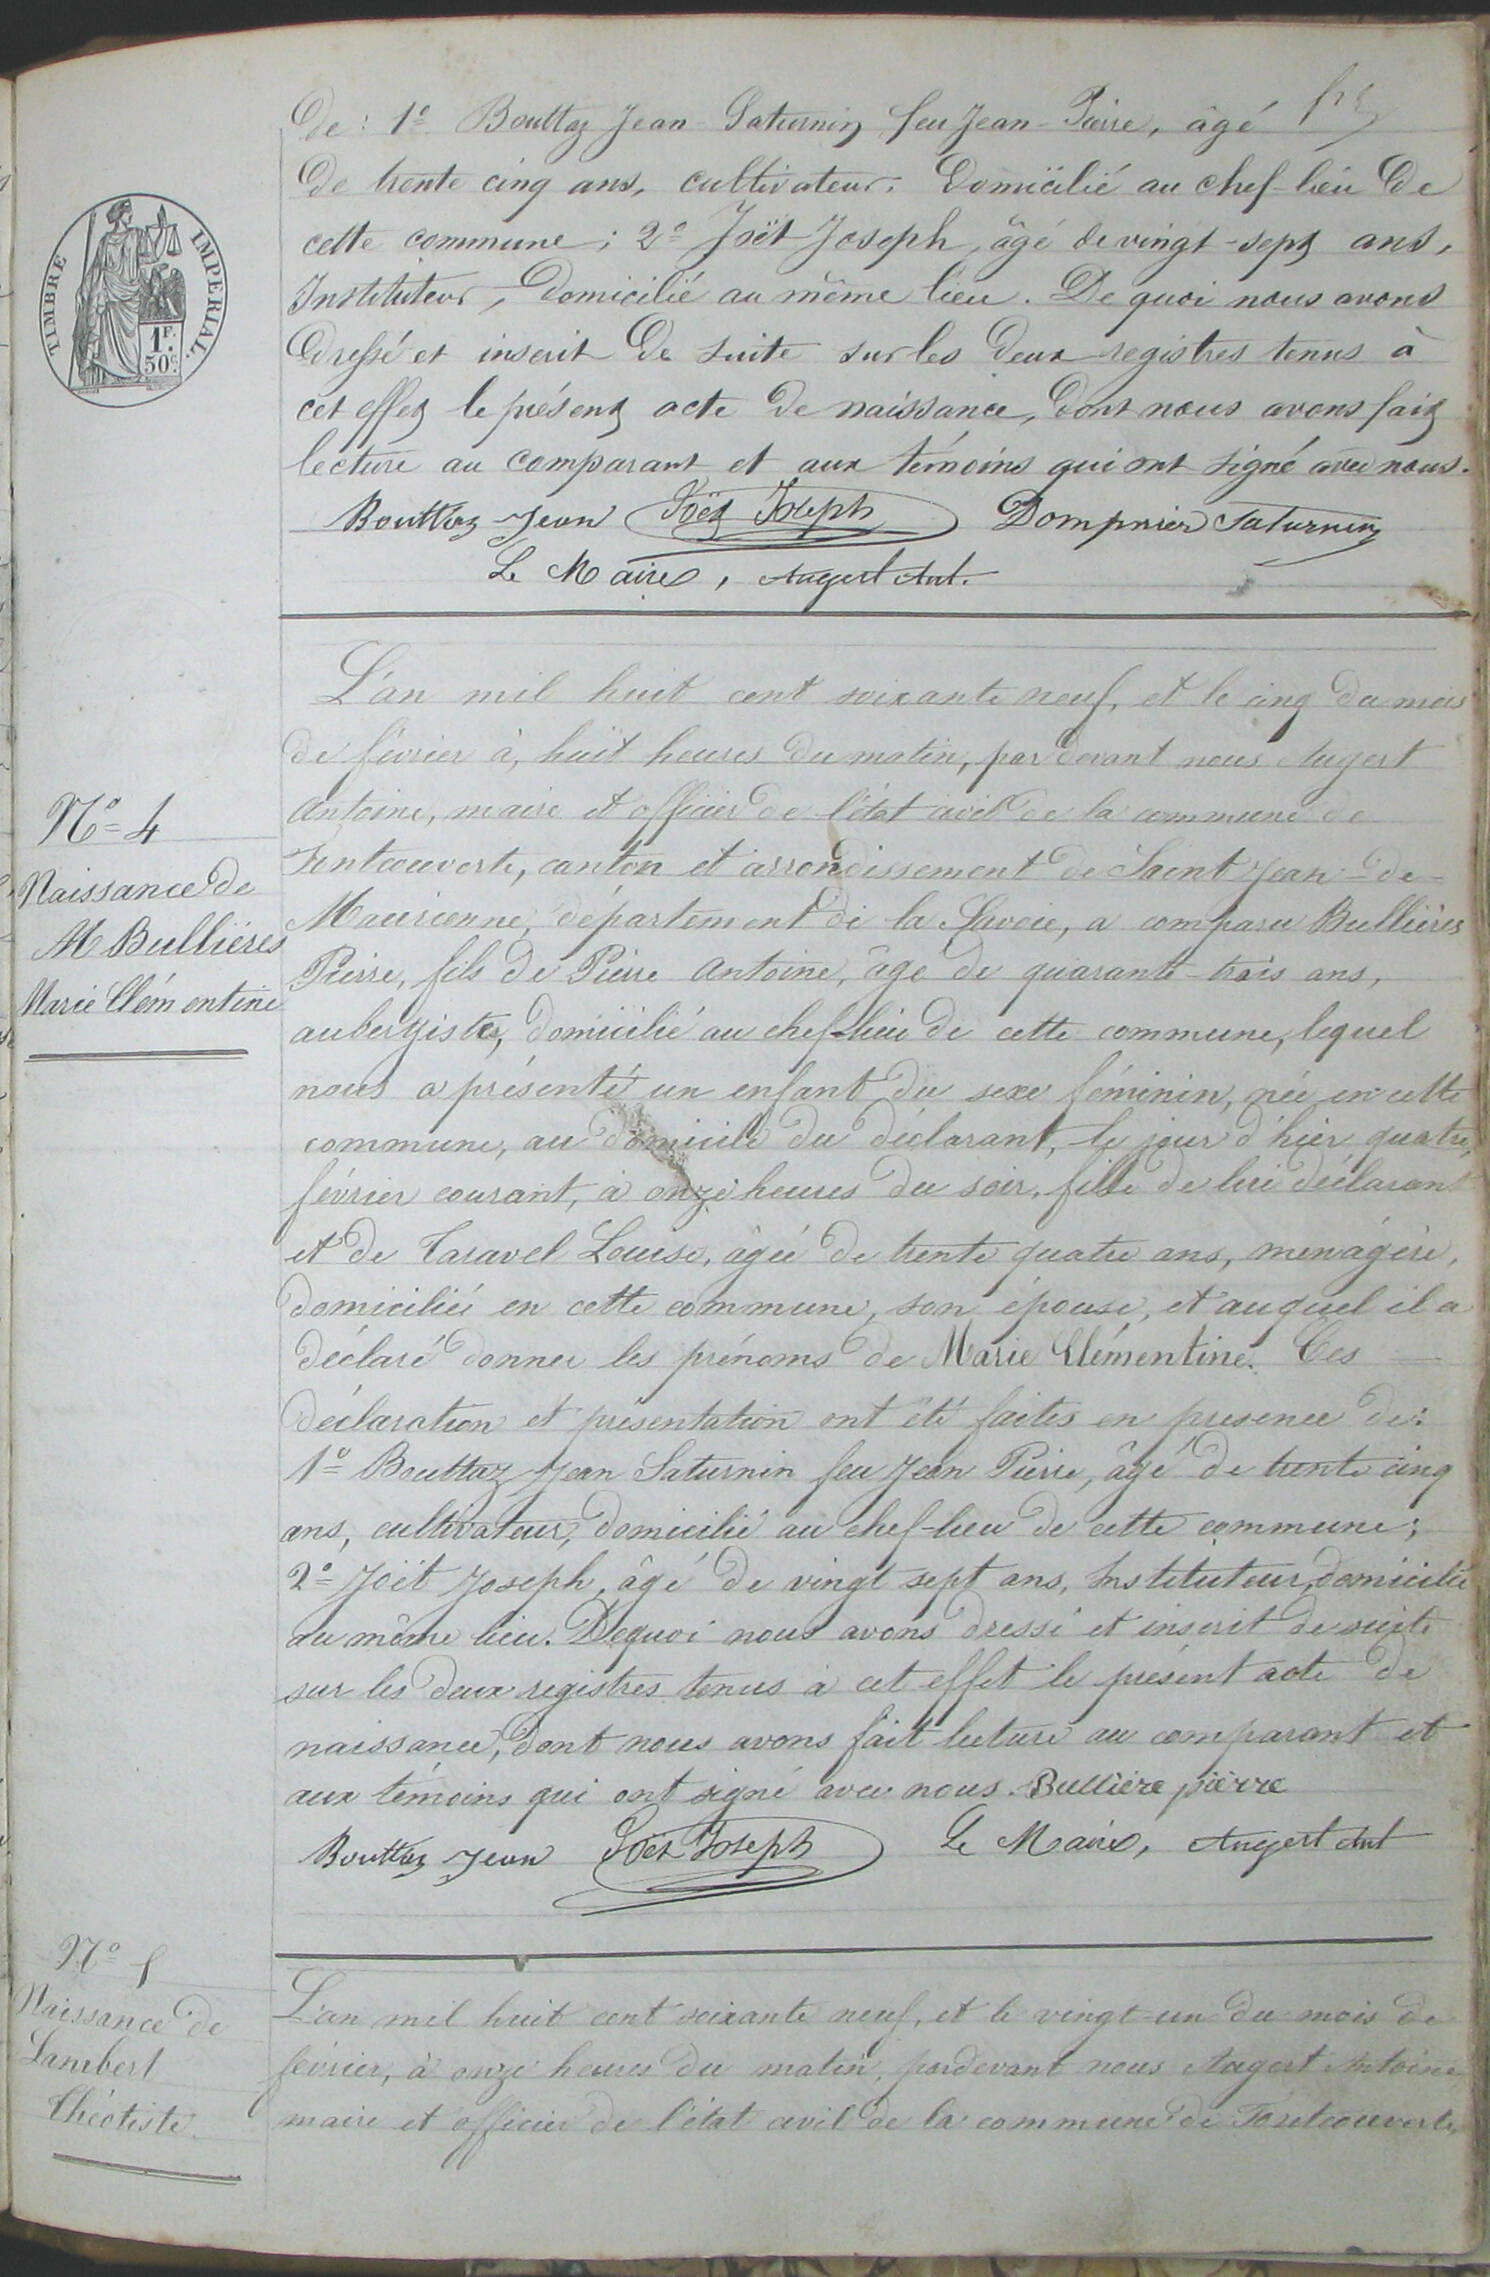 De : 1º Bouttaz Jean-Saturnin feu Jean-Pierre, âgé
de trente cinq ans, cultivateur, domicilié au chef-lieu de
cette commune ; 2º Joët Joseph, âgé de vingt-sept ans,
Instituteur, domicilié au même lieu. De quoi nous avons
dressé et inscrit de suite sur les deux registres tenus à
cet effet le présent acte de naissance, dont nous avons fait
lecture au comparant et aux témoins qui ont signé avec nous.
Bouttaz Jean Joët Joseph Dompnier Saturnin
Le Maire, Augert Ant.
TIMBRE IMPERIAL.
1F.
50c.
Nº 4
Naissance de
M Bullières
Marie Clémentine
L'an mil huit cent soixante neuf, et le cinq du mois
de février à, huit heures du matin, par devant nous Augert
Antoine, maire et officier de l'état civil de la commune de
Fontcouverte, canton et arrondissement de Saint Jean-de-
Maurienne, département de la Savoie, a comparu Bullières
Pierre, fils de Pierre Antoine, âgé de quarante-trois ans,
aubergiste, domicilié au chef-lieu de cette commune, lequel
nous a présenté un enfant du sexe féminin, née en cette
commune, au domicile du déclarant, le jour d'hier quatre
février courant, à onze heures du soir, fille de lui déclarant
et de Taravel Louise, âgée de trente quatre ans, ménagère,
domiciliée en cette commune, son épouse, et auquel il a
déclaré donner les prénoms de Marie Clémentine. Ces
déclaration et présentation ont été faites en présence de :
1º Bouttaz Jean Saturnin feu Jean Pierre, âgé de trente cinq
ans, cultivateur, domicilié au chef-lieu de cette commune ;
2º Joët Joseph, âgé de vingt sept ans, Instituteur, domicilié
au même lieu. De quoi nous avons dressé et inscrit de suite
sur les deux registres tenus à cet effet le présent acte de
naissance, dont nous avons fait lecture au comparant et
aux témoins qui ont signé avec nous. Bullière pierre
Bouttaz Jean Joët Joseph Le Maire, Augert Ant
Nº 5
Naissance de
Lambert
Théotiste
L'an mil huit cent soixante neuf, et le vingt-un du mois de
février, à onze heures du matin, pardevant nous Augert Antoine
maire et officier de l'état civil de la commune de Fontcouverte,